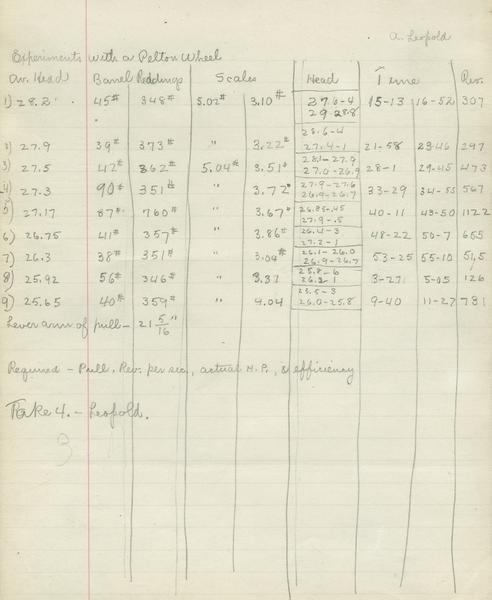 A. Leopold
Experiments with a Pelton Wheel
Av. Head Barrel Readings Scales Head Time Rev.
1) 28.2 45# 348# 5.02# 3.10# 27.6-4 15-13 16-52 307
29-28.8
28.6-4
2) 27.9 39# 373# " 3.22# 27.4-1 21-58 23-46 297
28.1-27.9
3) 27.5 42# 362# 5.04# 3.51# 27.0-26.9 28-1 29-45 473
27.9-27.6
4) 27.3 90# 351# " 3.72# 26.9-26.7 33-29 34-55 567
5) 27.17 87# 760# " 3.67# 26.85-.45 40-11 43-50 1122
27.9-.5
6) 26.75 41# 357# " 3.86# 26.4-3 48-22 50-7 655
27.2-1
7) 26.3 38# 351# " 3.04# 26.1-26.0 53-25 55-10 515
26.9-26.7
8) 25.92 56# 346# " 3.37 25.8-6 3-27 5-05 126
26.2-1
9) 25.65 40# 359# " 4.04 25.5-3 9-40 11-27 781
26.0-25.8
Lever arm of pull - 21 5/16"
Required - Pull, Rev. per sec., actual H.P., & efficiency
Take 4. - Leopold.
3